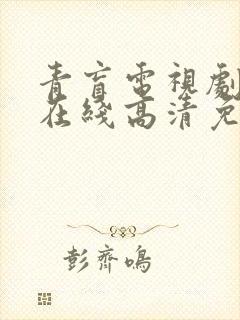 青盲電視劇
在綫高清免
彭齊鳴